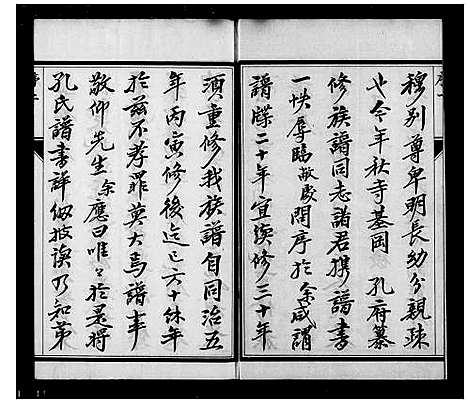 穆別尊卑明長幼分親疎
也今年秋寺基岡 孔府纂
修族譜同志諸君携譜書
一帙辱臨敝處問序於余咸謂
譜牒二十年宜續修三十年
須重修我族譜自同治五
年丙寅修後迄已六十餘年
於茲不孝罪莫大焉譜事
敬仰先生余應曰唯唯於是將
孔氏譜書詳細披讀乃知第